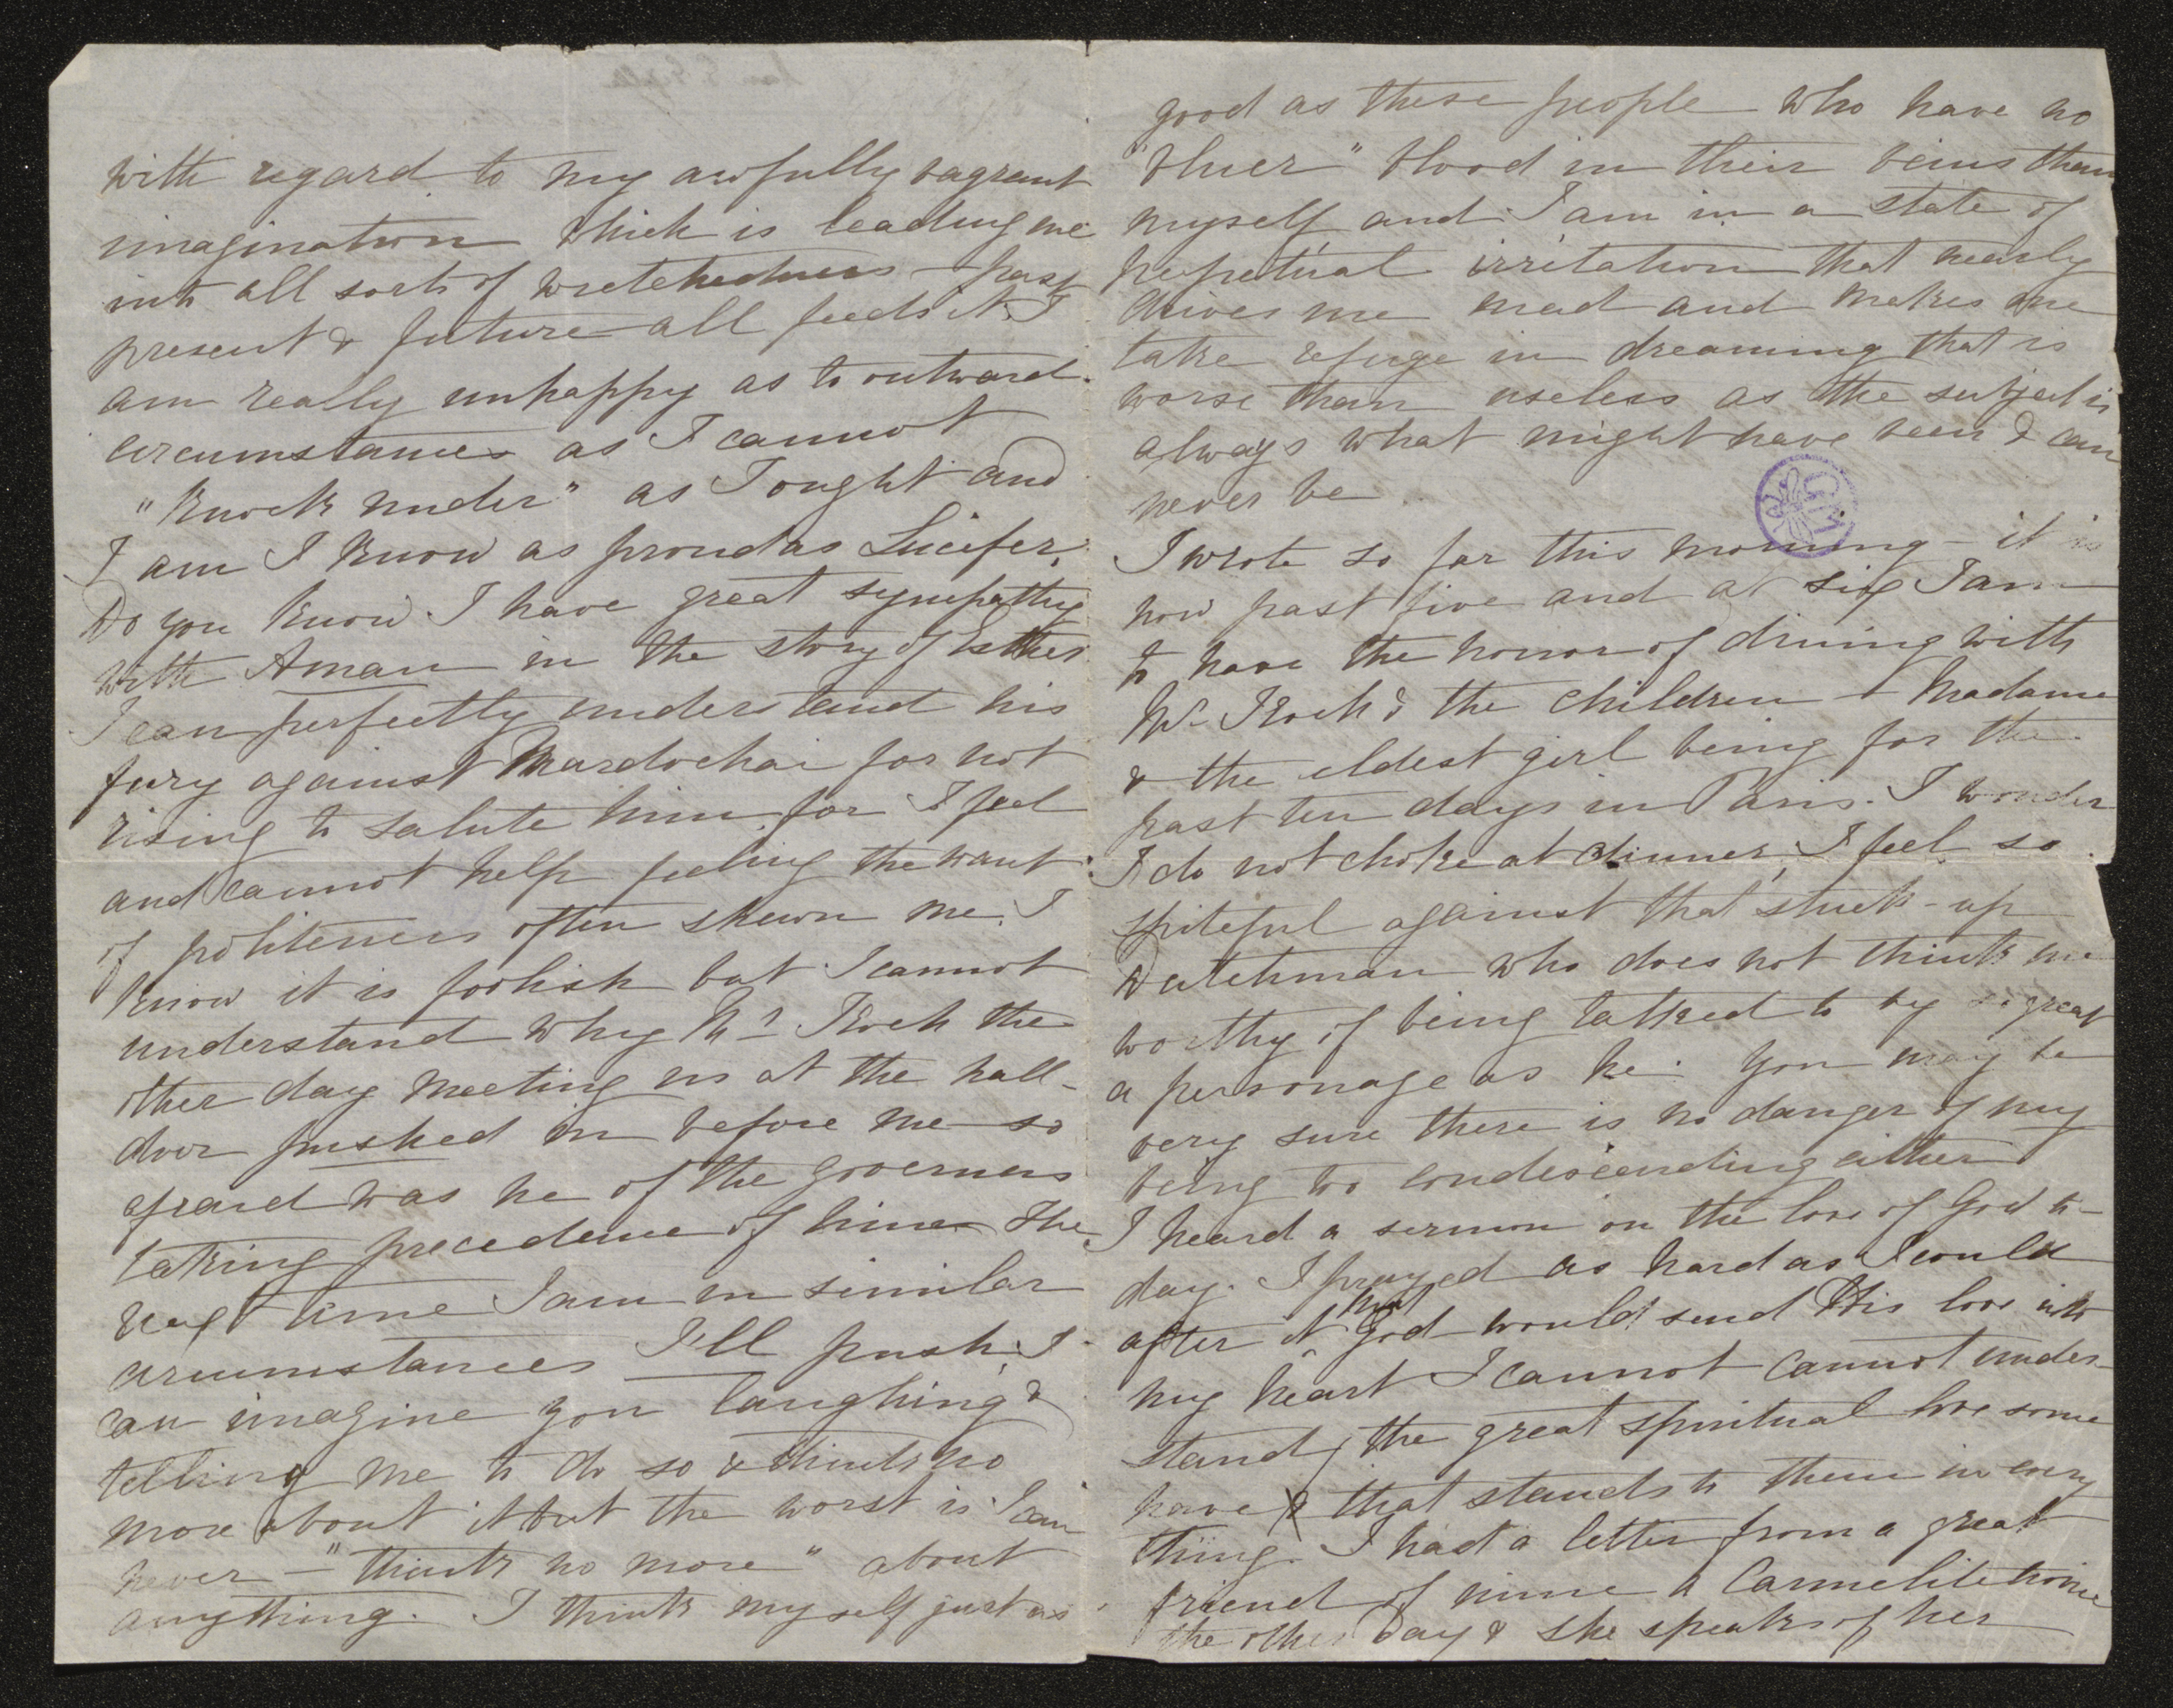 with regard to my awfully vagrant
imagination which is leading me
into all sorts of wretchedness - past
present & future all feeds it. I
am really unhappy as to outward
circumstances as I cannot
"knock under" as I ought and
I am I know as proud as Lucifer.
Do you know I have great sympathy
with Aman in the story of Esther
I can perfectly understand his
fury against Mardochai for not
rising to salute him for I feel
and cannot help feeling the want
of politeness often shewn me. I
know it is foolish but I cannot
understand why Mr Koch the
other day meeting us at the hall-
door pushed in before me so
afraid was he of the governess
taking precedence of him. The
next time I am in similar
circumstances I'll push. I
can imagine you laughing &
telling me to do so & think no
more about it but the worst is I can
never - "think no more" about
anything. I think myself just as
good as these people who have no
"bluer" blood in their veins than
myself and I am in a state of
perpetual irritation that nearly
drives me mad and makes me
take refuge in dreaming that is
worse than useless as the subject is
always what might have been & can
never be.
I wrote so far this morning - it is
now past five and at six I am
to have the honor of dining with
Mr Koch & the children - Madame
& the eldest girl being for the
past ten days in Paris. I wonder
I do not choke at dinner, I feel so
spiteful against that stuck-up
Dutchman who does not think me
worthy of being talked to by so great
a personage as he. You may be
very sure there is no danger of my
being too condescending either
I heard a sermon on the love of God to-
day. I prayed as hard as I could
after it that God would send His love into
my heart I cannot cannot under-
stand the great spiritual love some
have & that stands to them in every
thing. I had a letter from a great
friend of mine a Carmelite
the other day & she speaks of her